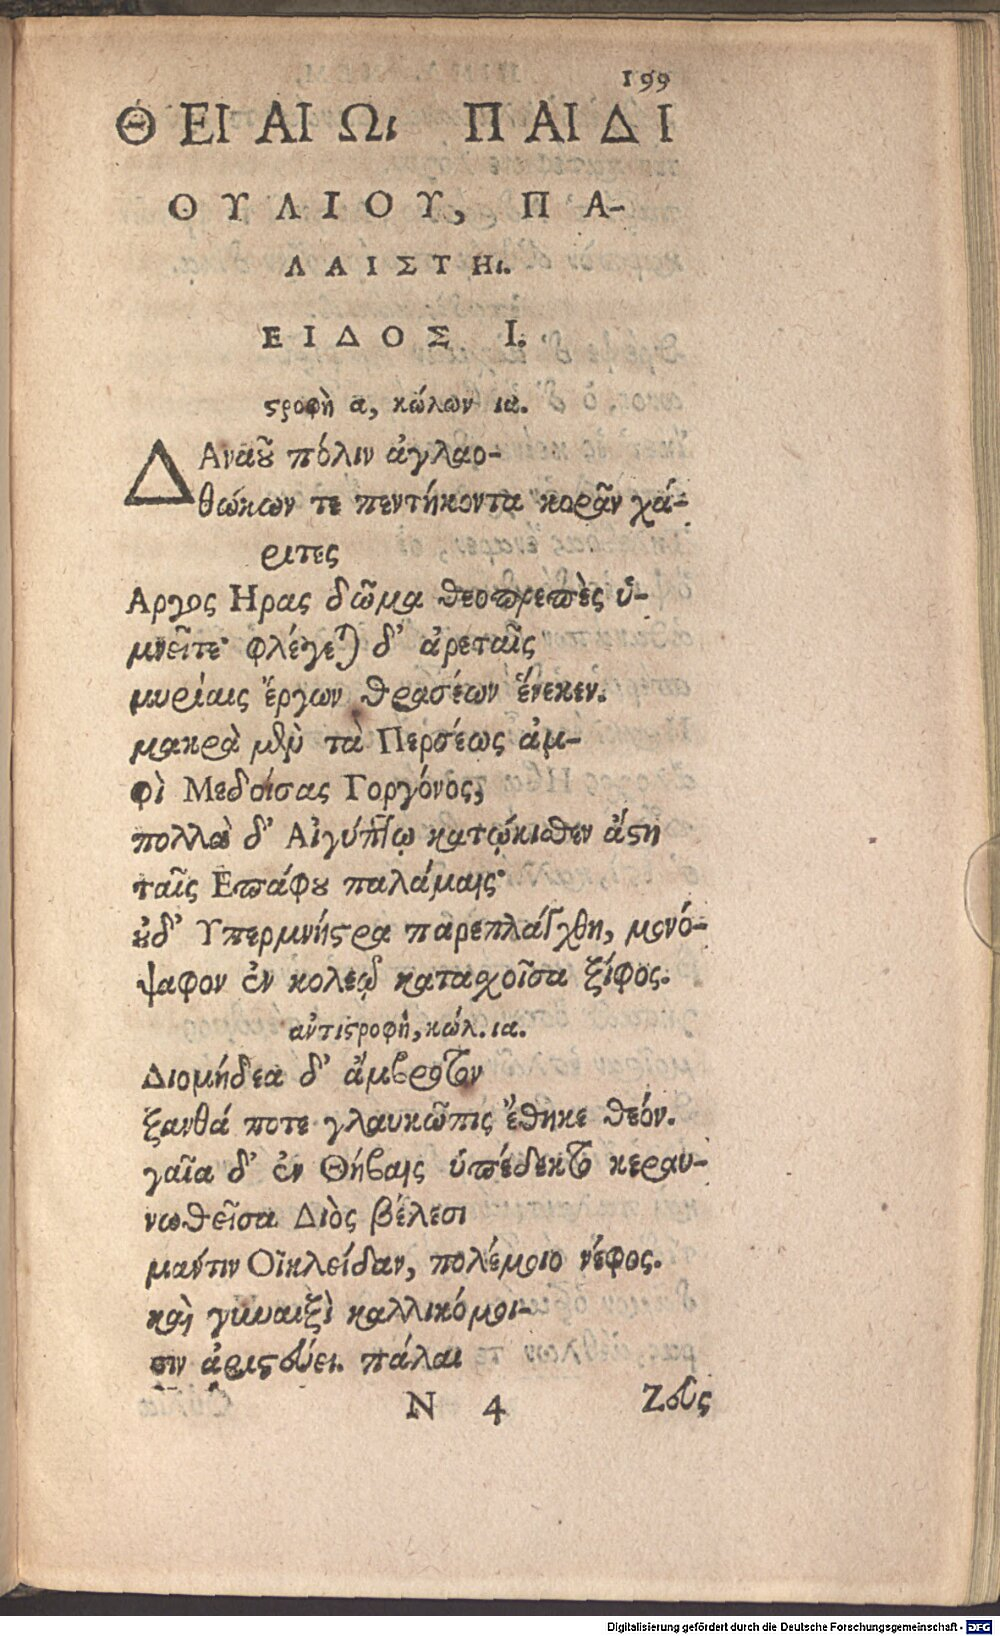 199
ΘΕΙΑΙΩι ΠΑΙΔΙ
ΘΥΛΙΟΥ, ΠΑ-
ΛΑΙΣΤΗι.
ΕΙΔΟΣ Ι.
ϛροφὴ α, κώλων ια.
ΔΑναȣ͂ πόλιν ἀγλαο-
θώκων τε πεντήκοντα κορᾶν χά-
ριτες
Αργος Ηρας δῶμα θεοπρεπὲς ὑ-
μνεῖτε· φλέγεται δ' ἀρεταῖς
μυρίαις ἔργων θρασέων ἕνεκεν.
μακρὰ μὲν τὰ Περσέως ἀμ-
φὶ Μεδοίσας Γοργόνος,
πολλὰ δ' Αἰγύπτῳ κατῴκιθεν ἄϛη
ταῖς Επάφȣ παλάμαις·
ȣδ' Υπερμνήϛρα παρεπλάγχθη, μονό-
ψαφον ἐν κολεῷ κατασχοῖσα ξίφος.
αὐτιϛροφὴ, κώλ. ια.
Διομήδεα δ' ἄμβροτον
ξανθά ποτε γλαυκῶπις ἔθηκε θεόν.
γαῖα δ' ἐν Θήβαις ὑπέδεκτο κεραυ-
νωθεῖσα Διὸς βέλεσι
μάντιν Οἰκλείδαν, πολέμοιο νέφος.
καὶ γυναιξὶ καλλικόμοι-
σιν ἀριϛεύει. πάλαι
N 4 Ζεὺς
Digitalisierung gefördert durch die Deutsche Forschungsgemeinschaft - DFG